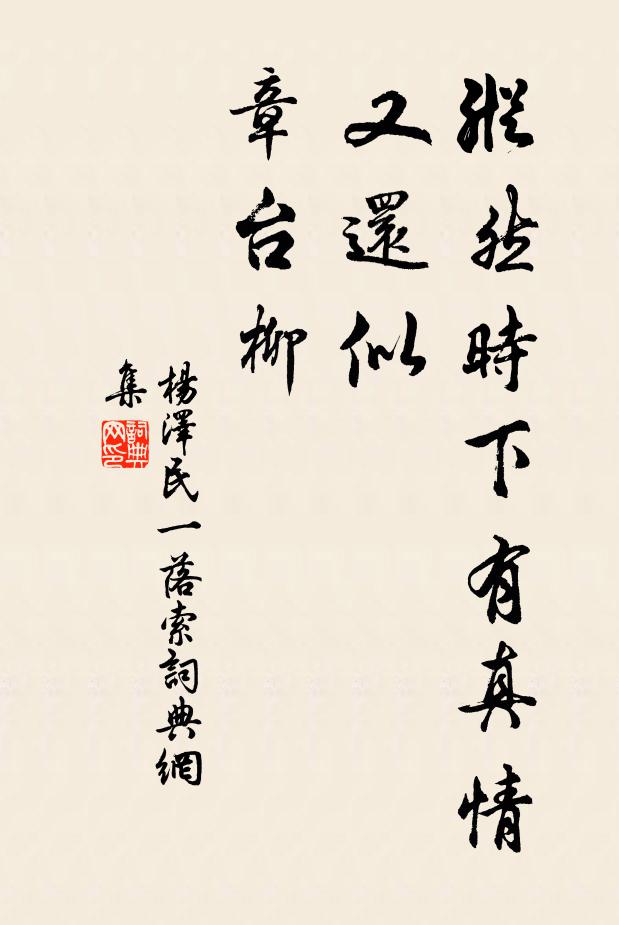 縱然時下有真情
又還似
章台柳
楊澤民一落索詞典網
集
詞典
网印